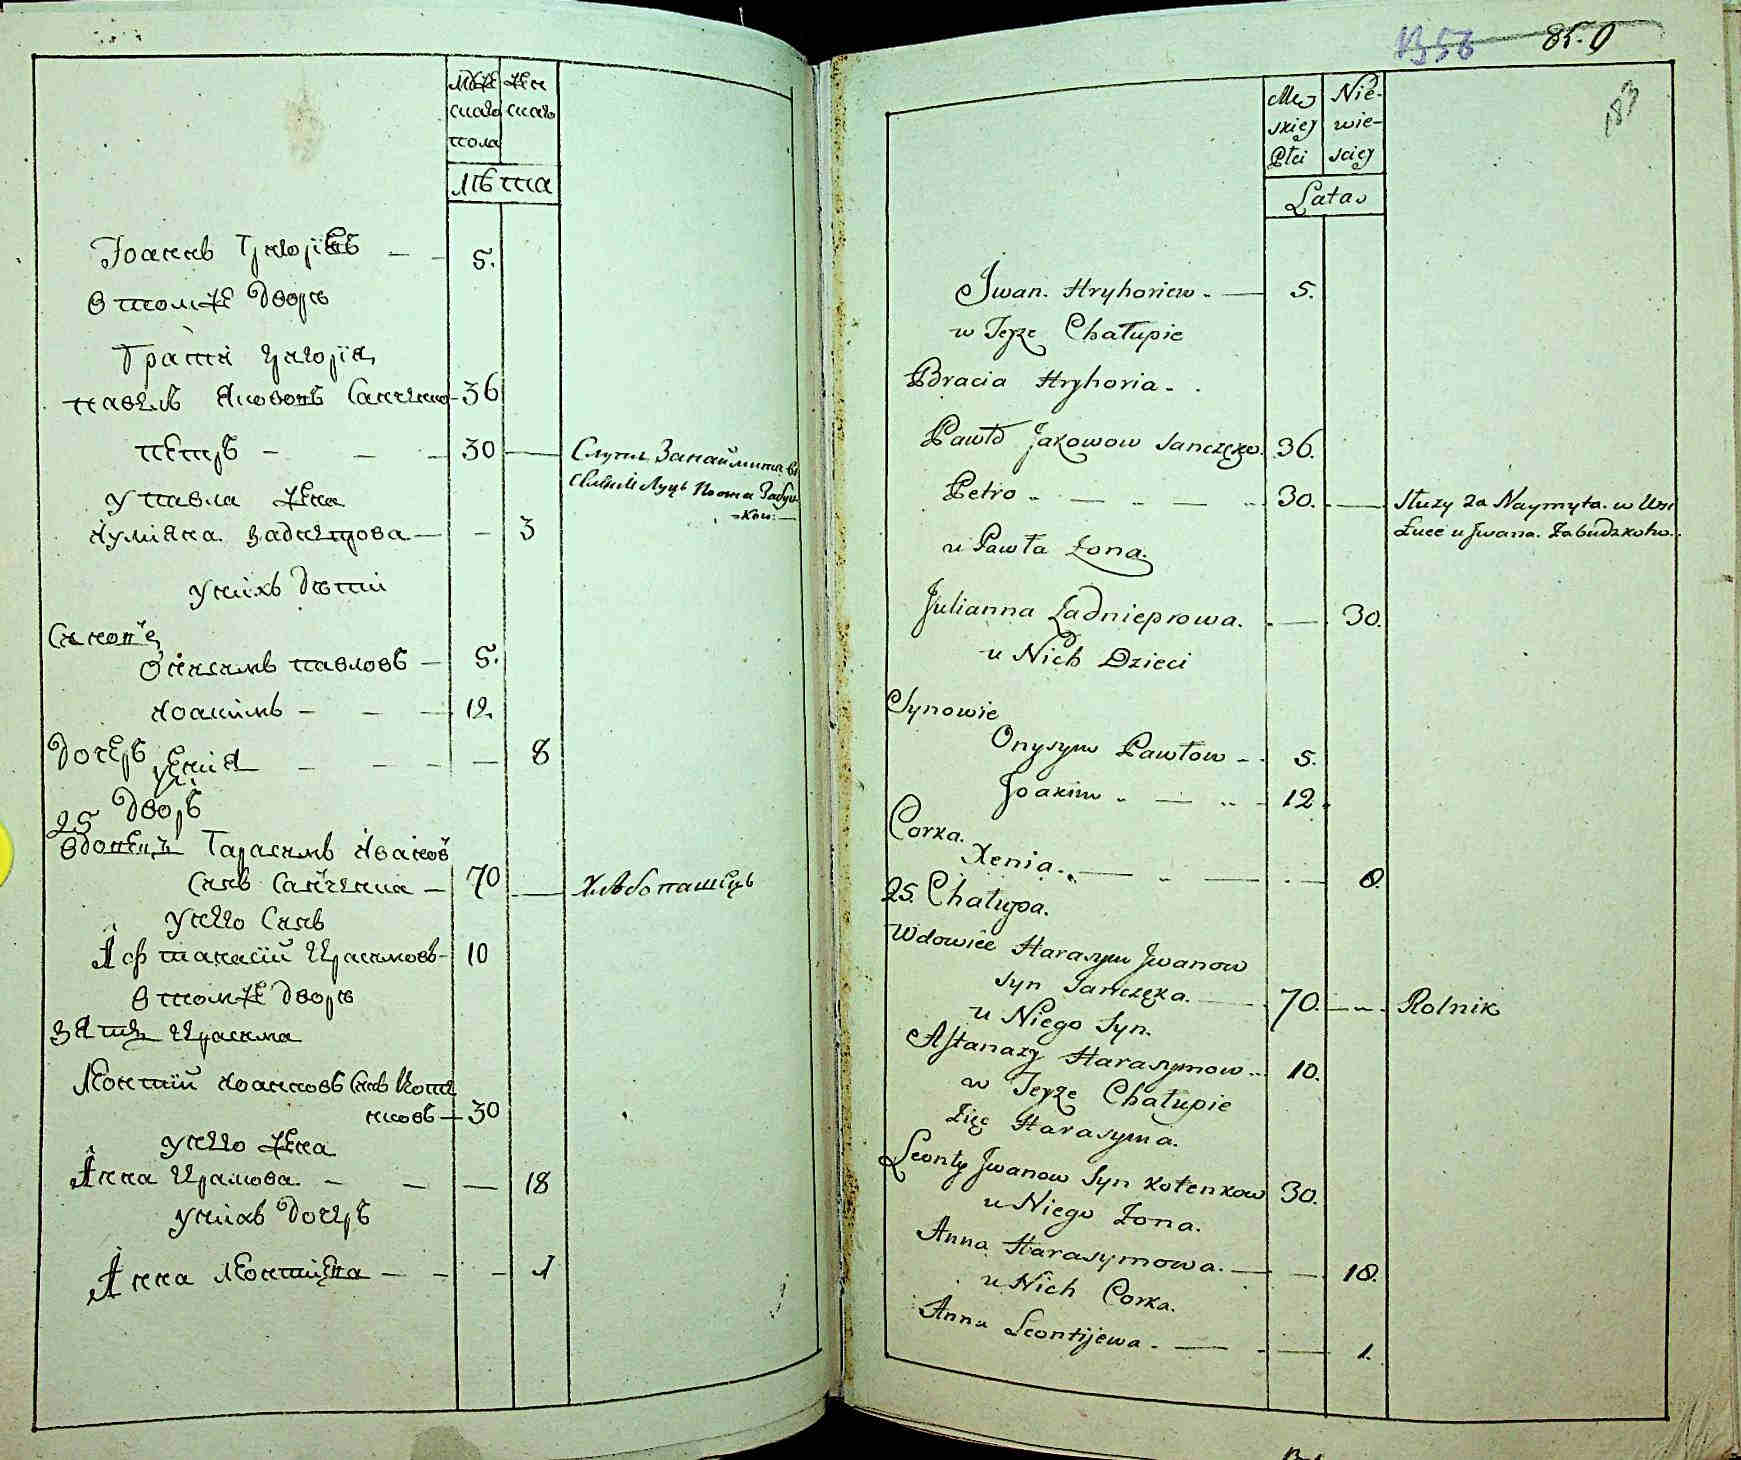 Муже Жен
скаго скаго
пола
Лѣта
Іоаннъ Григоріевъ — — 5.
в томже дворѣ
Братія Григорія
павелъ Якововъ Санченко 36
петръ — — — 30
Служи Занаймита в
селѣ Луцѣ
у павла жена
Іуліяна Заднепрова — — 3
у нихъ дѣти
Сыновѣ
Онисимъ павловъ — 5.
Іоакимъ — — — 12
Дочеръ Ксенія — — — 8
25 Дворъ
вдовецъ Гарасимъ Іванов
Сынъ Санченка — 70 — Хлѣбопашецъ
у него Сынъ
Афтанасій Ирасимовъ 10
в томже дворѣ
зять Ирасима
Леонтій Іоанновъ Сынъ Коте
нковъ — 30
у него жена
Анна Ирасимова — — — 18
у нихъ дочеръ
Анна Леонтіева — — — 1
В56 85. 9
183
Męs Nie-
skiej wie-
Płci sciej
Lata
Iwan Hryhoriew. — 5.
w Teyże Chałupie
Bracia Hryhoria. .
Pawło Jakowow Sanczęko. 36.
Petro .. — .. — 30. — Służy za Naymyta. w Wsi
Łuce u Jwana. Zabudzkoho.
u Pawła Żona.
Julianna Zadnieprowa. — 30.
u Nich Dzieci
Synowie
Onysym Pawłow .. 5.
Joakim .. — .. 12.
Corka.
Xenia .. — .. — .. — 8.
25. Chałupa.
Wdowiec Harasym Jwanow
Syn Sanczęka. — 70. — .. Rolnik
u Niego Syn.
Aftanazy Harasymow .. 10.
w Teyże Chałupie
Zięć Harasyma.
Leonty Jwanow Syn Kotenkow 30.
u Niego Żona.
Anna Harasymowa. — — 18.
u Nich Corka.
Anna Leontijewa. — .. — 1.